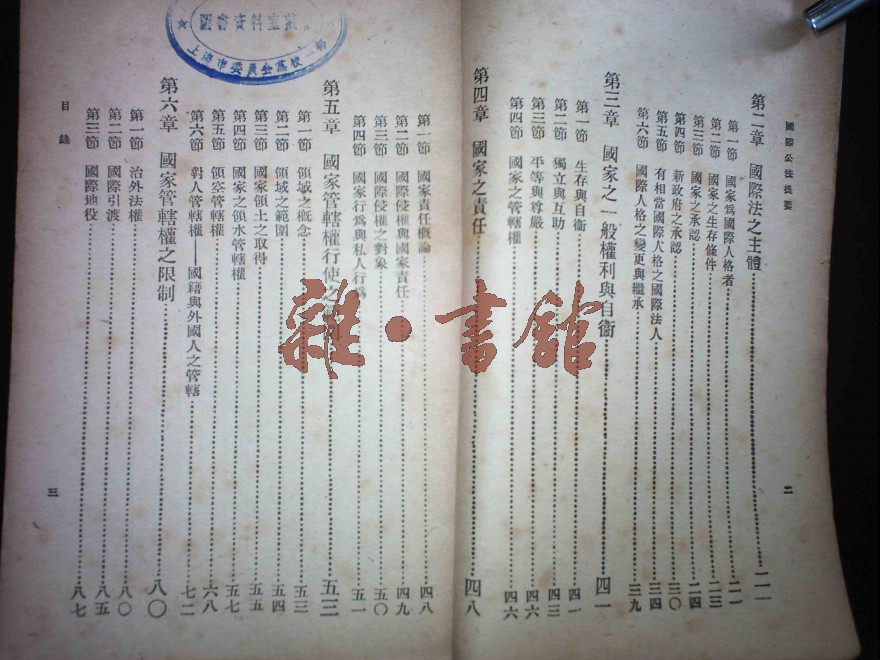 國際公法提要
二
第二章 國際法之主體 二一
第一節 國家爲國際人格者 二一
第二節 國家之生存條件 二三
第三節 國家之承認 二四
第四節 新政府之承認 三〇
第五節 有相當國際人格之國際法人 三四
第六節 國際人格之變更與繼承 三九
第三章 國家之一般權利與自衞 四一
第一節 生存與自衞 四一
第二節 獨立與互助 四三
第三節 平等與尊嚴 四六
第四節 國家之管轄權 四六
第四章 國家之責任 四八
第一節 國家責任概論 四八
第二節 國際侵權與國家責任 四九
第三節 國際侵權之對象 五〇
第四節 國家行爲與私人行爲 五一
第五章 國家管轄權行使之 五三
第一節 領域之概念 五三
第二節 領域之範圍 五四
第三節 國家領土之取得 五五
第四節 國家之領水管轄權 五七
第五節 領空管轄權 六八
第六節 對人管轄權——國籍與外國人之管轄 七二
第六章 國家管轄權之限制 八〇
第一節 治外法權 八〇
第二節 國際引渡 八五
第三節 國際地役 八七
目錄
三
圖書資料室藏
上海市委員會黨校一部
雜·書館